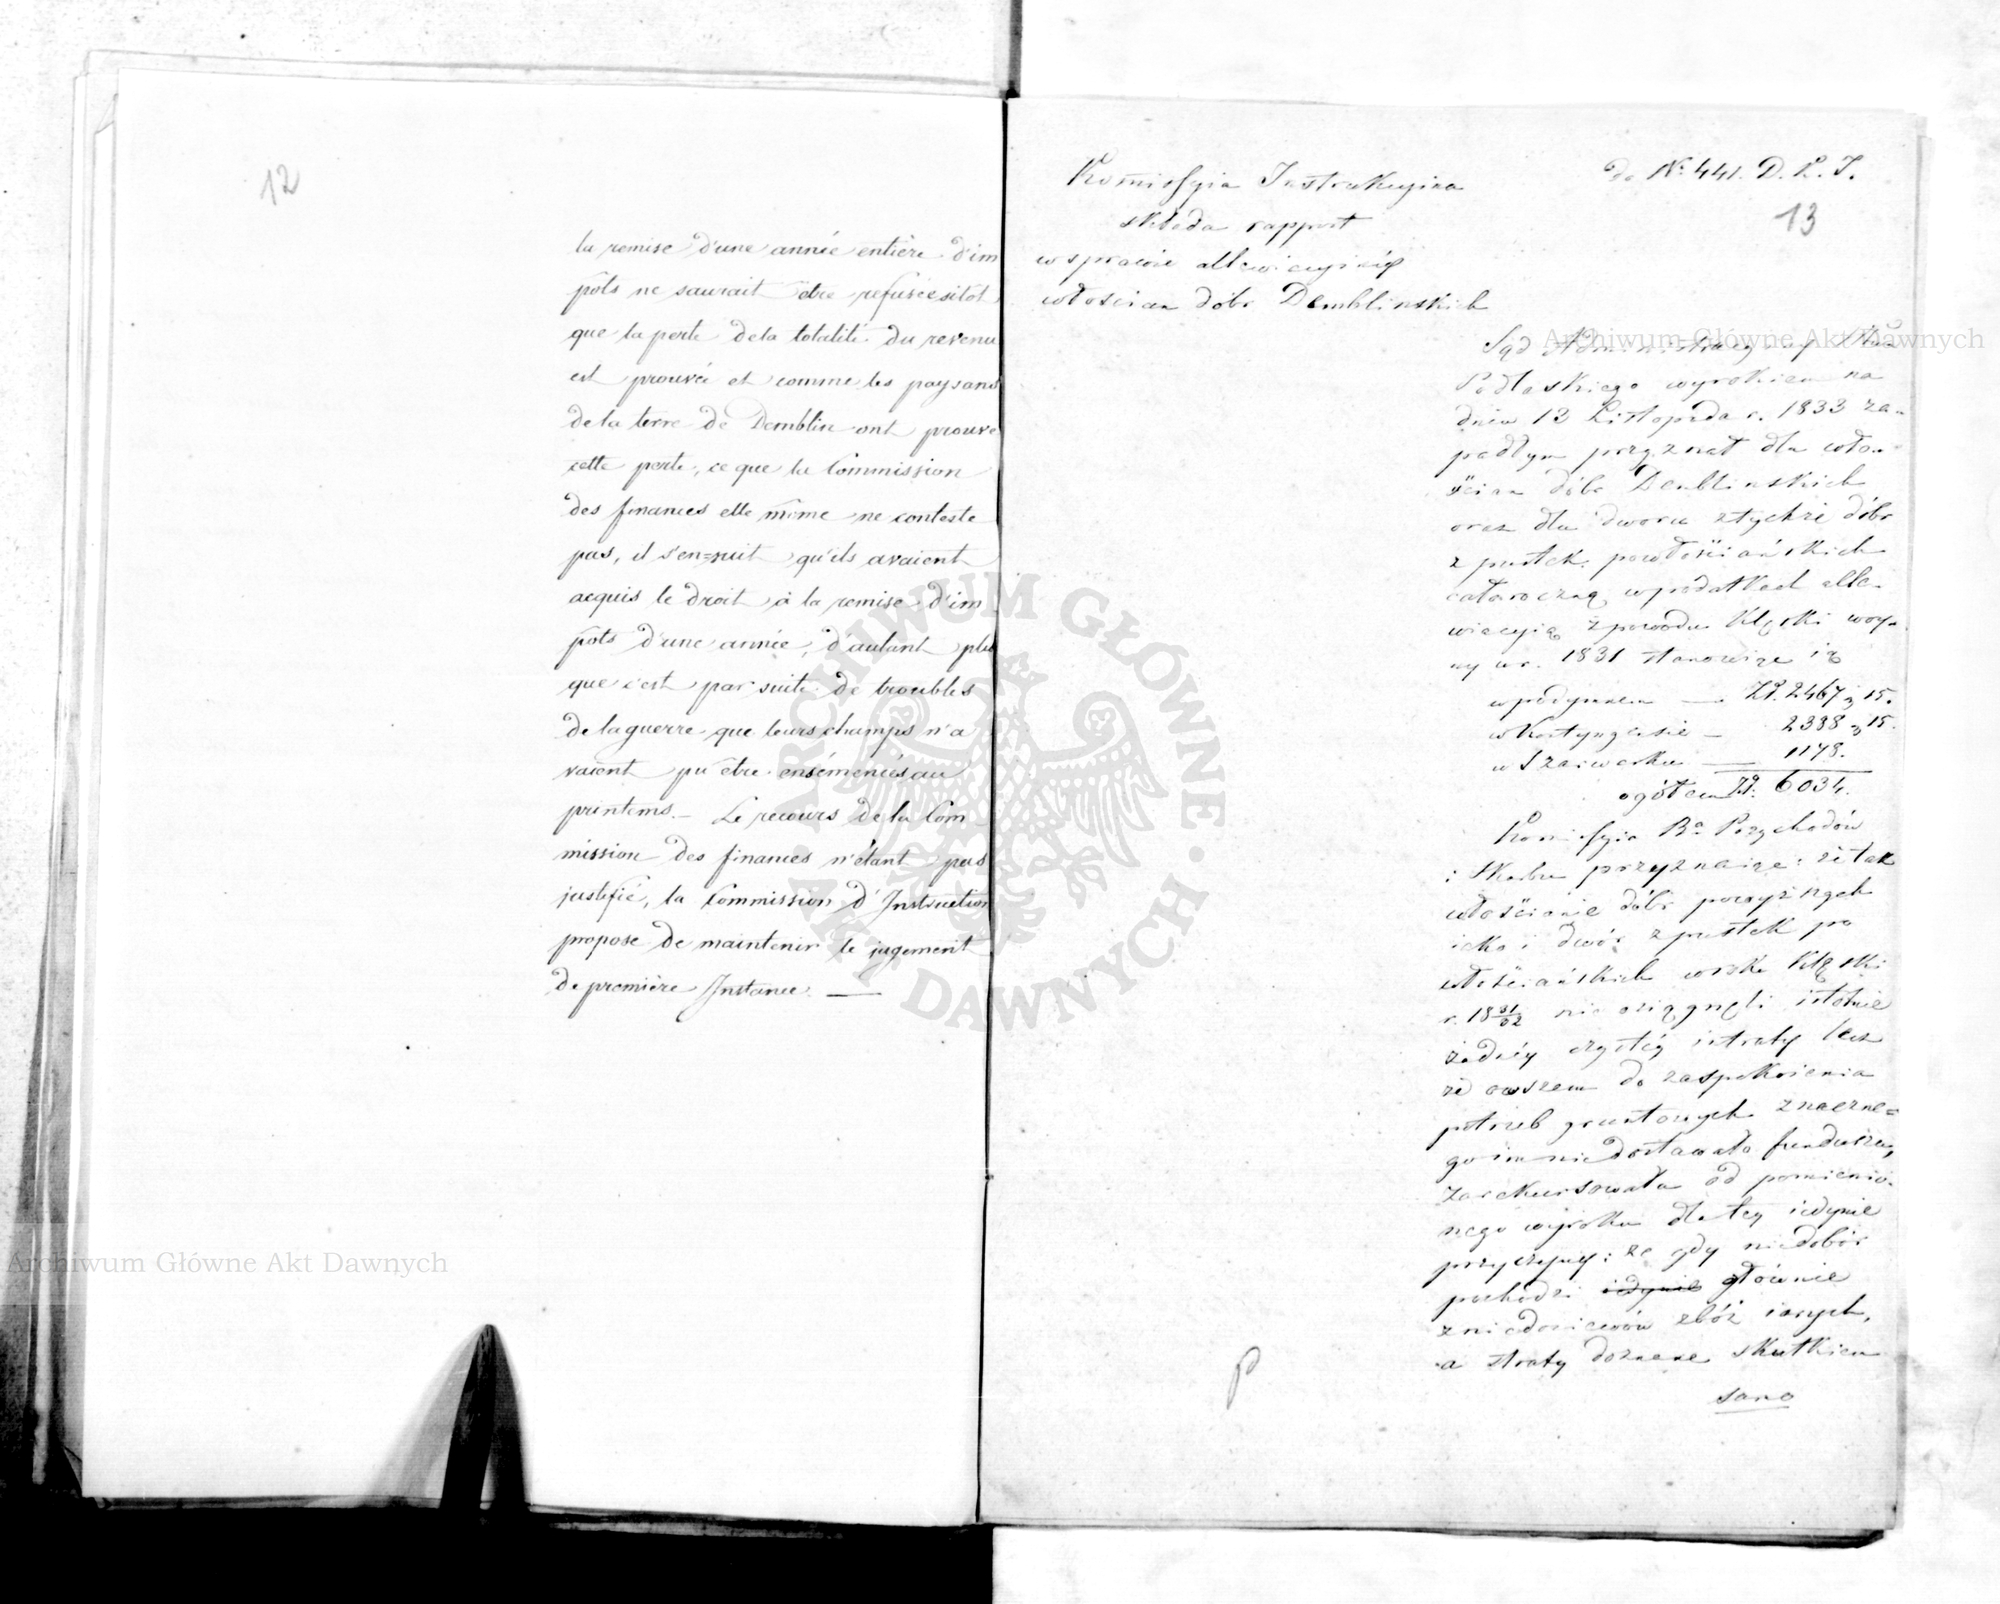 12
la remise d'une année entière d'im
pôts ne saurait être refusée sitôt
que la perte de la totalité du revenu
est prouvée et comme les paysans
de la terre de Demblin ont prouvé
cette perte, ce que la Commission
des finances elle même ne conteste
pas, il s'en=suit qu'ils avaient
acquis le droit à la remise d'im
pôts d'une année, d'autant plus
que c'est par suite de troubles
de la guerre que leurs champs n'a
vaient pu être ensémencés au
printems. — Le recours de la Com
mission des finances n'étant pas
justifié, la Commission d'Instruction
propose de maintenir le jugement
de première Instance. —
Kommissyia Instrukcyina
składa rapport
w sprawie allewiacyinéj
włościan dóbr Demblinskich
do No 441. D. K. I.
13
Sąd Administracyiny
Podlaskiego wyrokiem na
dniu 13 Listopada r. 1833 za-
padłym przyznał dla włoś-
ścian dóbr Demblinskich
oraz dla dworu z tychże dóbr
z pustek powłościańskich
całoroczną w podatkach alle-
wiacyią z powodu klęski woy-
ny w r. 1831 stanowiącą
w podymnem — Zł. 2467 g 15.
w Kontyngensie — 2388 g 15.
w Szarwarku — 1178.
ogółem Zł. 6034.
Kommissyia Rz. Przychodów
i Skarbu przyznaiąc: że tak
włościanie dóbr powyższych
iako i dwór z pustek po
włościańskich w roku klęski
r. 1831/32 nie osiągnęli istotnie
żadnéy czystéy intraty lecz
że owszem do zaspokoienia
potrzeb gruntowych znaczne=
go im niedostawało funduszu,
zarekursowała od pomienio-
nego wyroku dla téy iedynie
przyczyny: że gdy niedobór
pochodzi iedynie głównie
z niedosiewów zbóż iarych,
a straty doznane skutkiem
samo
P
Archiwum Główne Akt Dawnych
Archiwum Główne Akt Dawnych
ARCHIWUM GŁÓWNE · AKT DAWNYCH ·